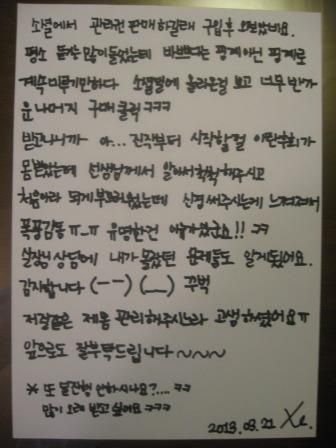 소셜에서 관리권 판매하길래 구입후 와봤네요.
평소 많이들었는데 바쁘다는 핑계아닌 핑계로
계속미루기만하다 소셜벌에 올라온걸 보고 너무 반가
운 나머지 구매 클릭 ㅋㅋㅋ
받고나니까 아... 진작부터 시작할걸 이런후회가
선생님께서 알아서척척해주시고
처음이라 되게부끄러웠는데 신경써주시는게 느껴져서
폭풍감동 ㅠ_ㅠ 유명한건 이유가있군요!! ㅋㅋ
실장님 상담에 내가 몰랐던 문제들도 알게됐어요.
감사합니다 (--) (__) 꾸벅
저질몸을 관리해주시느라 고생하셨어요ㅠ
앞으로도 잘부탁드립니다 ~~~
* 또 안하시나요?.... ㅋㅋ
많이 오래 받고 싶어요 ㅋㅋㅋ
2013.03.21